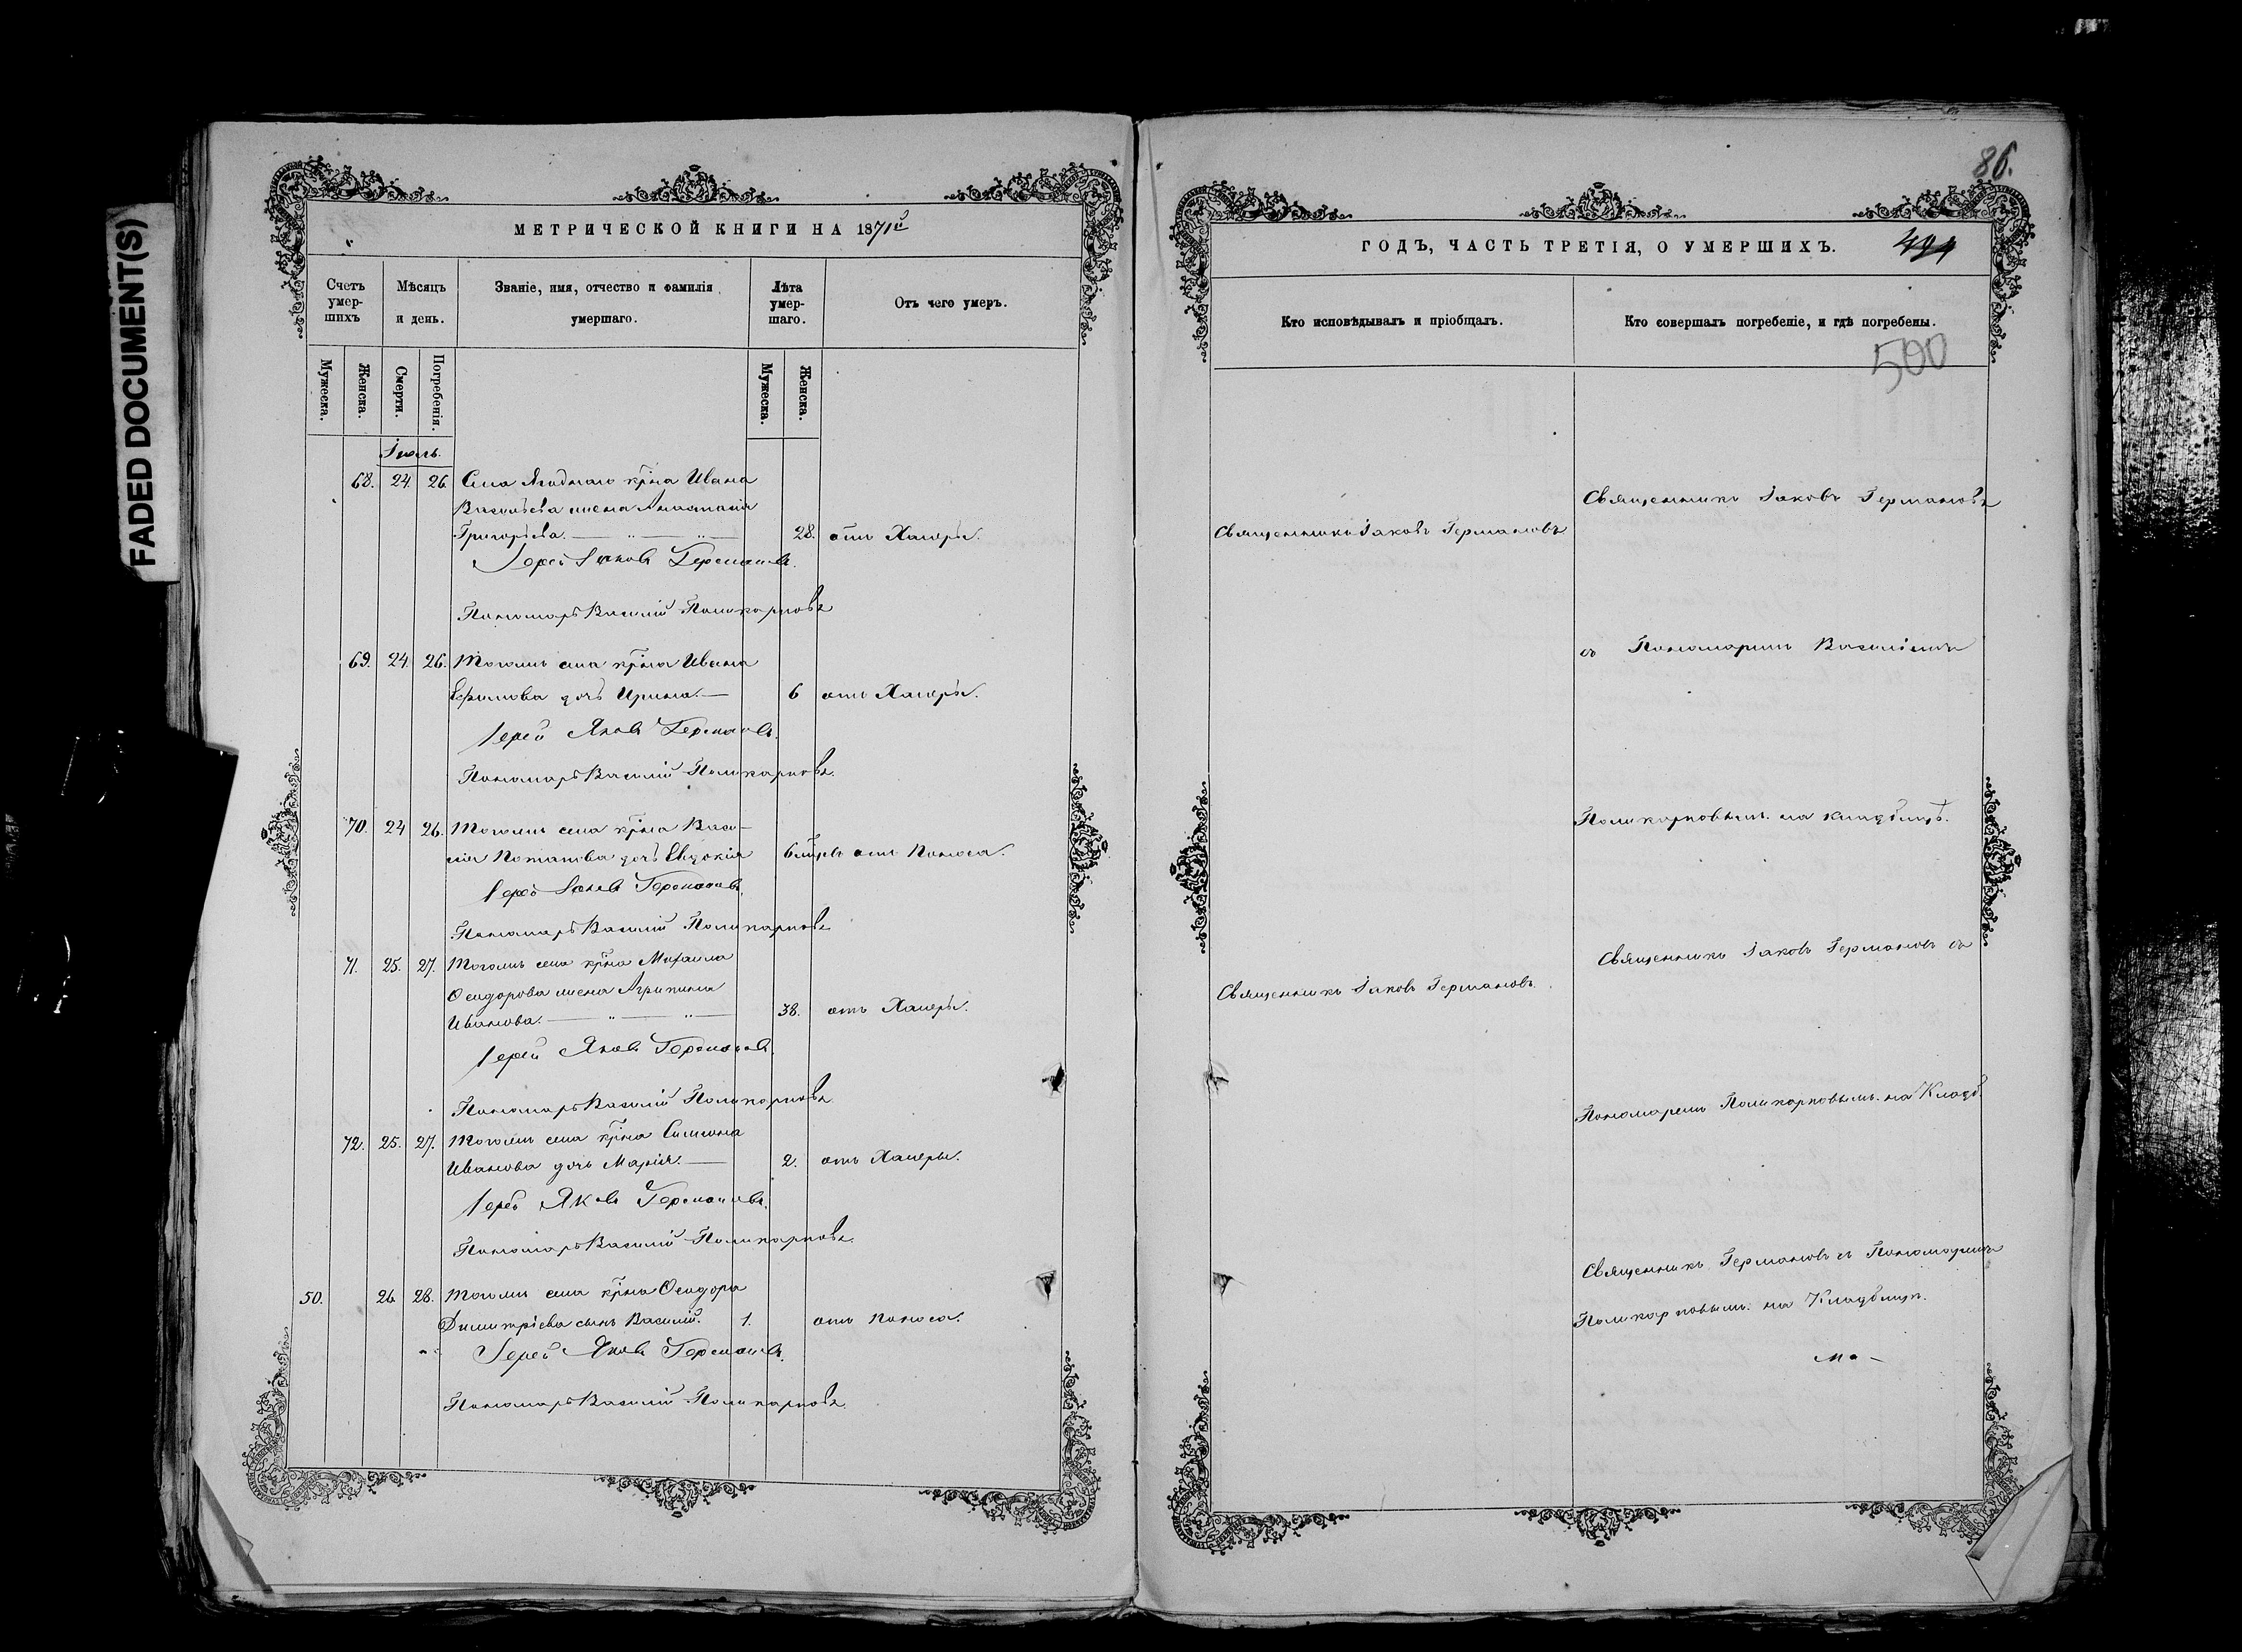 FADED DOCUMENT(S)
МЕТРИЧЕСКОЙ КНИГИ НА 1871й
Счетъ умер-шихъ
Мѣсяцъ и день.
Званіе, имя, отчество и фамилія умершаго.
Лѣта умер-шаго.
Отъ чего умеръ.
Мужеска.
Женска.
Смерти.
Погребенія.
Мужеска.
Женска.
Іюль.
68. 24. 26. Села Ягоднаго кр̃на Ивана
Васильева жена Анастасія
Григорьева. 28. отъ Халеры.
Іерей Іаковъ Германовъ.
Пономарь Василій Поликарповъ
69. 24. 26. Тогожъ села кр̃на Ивана
Ефимова дочь Ирина. 6 отъ Халеры.
Іерей Яковъ Германовъ.
Пономарь Василій Поликарповъ.
70. 24 26. Тогожъ села кр̃на Васи-
лія Потапова дочь Евдокія 6 отъ Поноса.
Іерей Іаковъ Германовъ.
Пономарь Василій Поликарповъ
71. 25. 27. Тогожъ села кр̃на Михаила
Осидорова жена Агрипина
Иванова. 38. отъ Халеры.
Іерей Яковъ Германовъ.
Пономарь Василій Поликарповъ
72. 25. 27. Тогожъ села кр̃на Симеона
Иванова дочь Марія. 2. отъ Халеры.
Іерей Яковъ Германовъ.
Пономарь Василій Поликарповъ.
50. 26 28. Тогожъ села кр̃на Осидора
Димитріева сынъ Василій. 1. отъ поноса.
Іерей Яковъ Германовъ.
Пономарь Василій Поликарповъ.
86.
ГОДЪ, ЧАСТЬ ТРЕТІЯ, О УМЕРШИХЪ.
Кто исповѣдывалъ и пріобщалъ.
Кто совершалъ погребеніе, и гдѣ погребены.
500
Священникъ Іаковъ Германовъ
Священникъ Іаковъ Германовъ
съ Пономаремъ Василіемъ
Поликарповымъ на кладбищѣ.
Священникъ Іаковъ Германовъ съ
Священникъ Іаковъ Германовъ.
Пономаремъ Поликарповымъ на Кладб.
Священникъ Германовъ съ Пономаремъ
Поликарповымъ на Кладбищѣ.